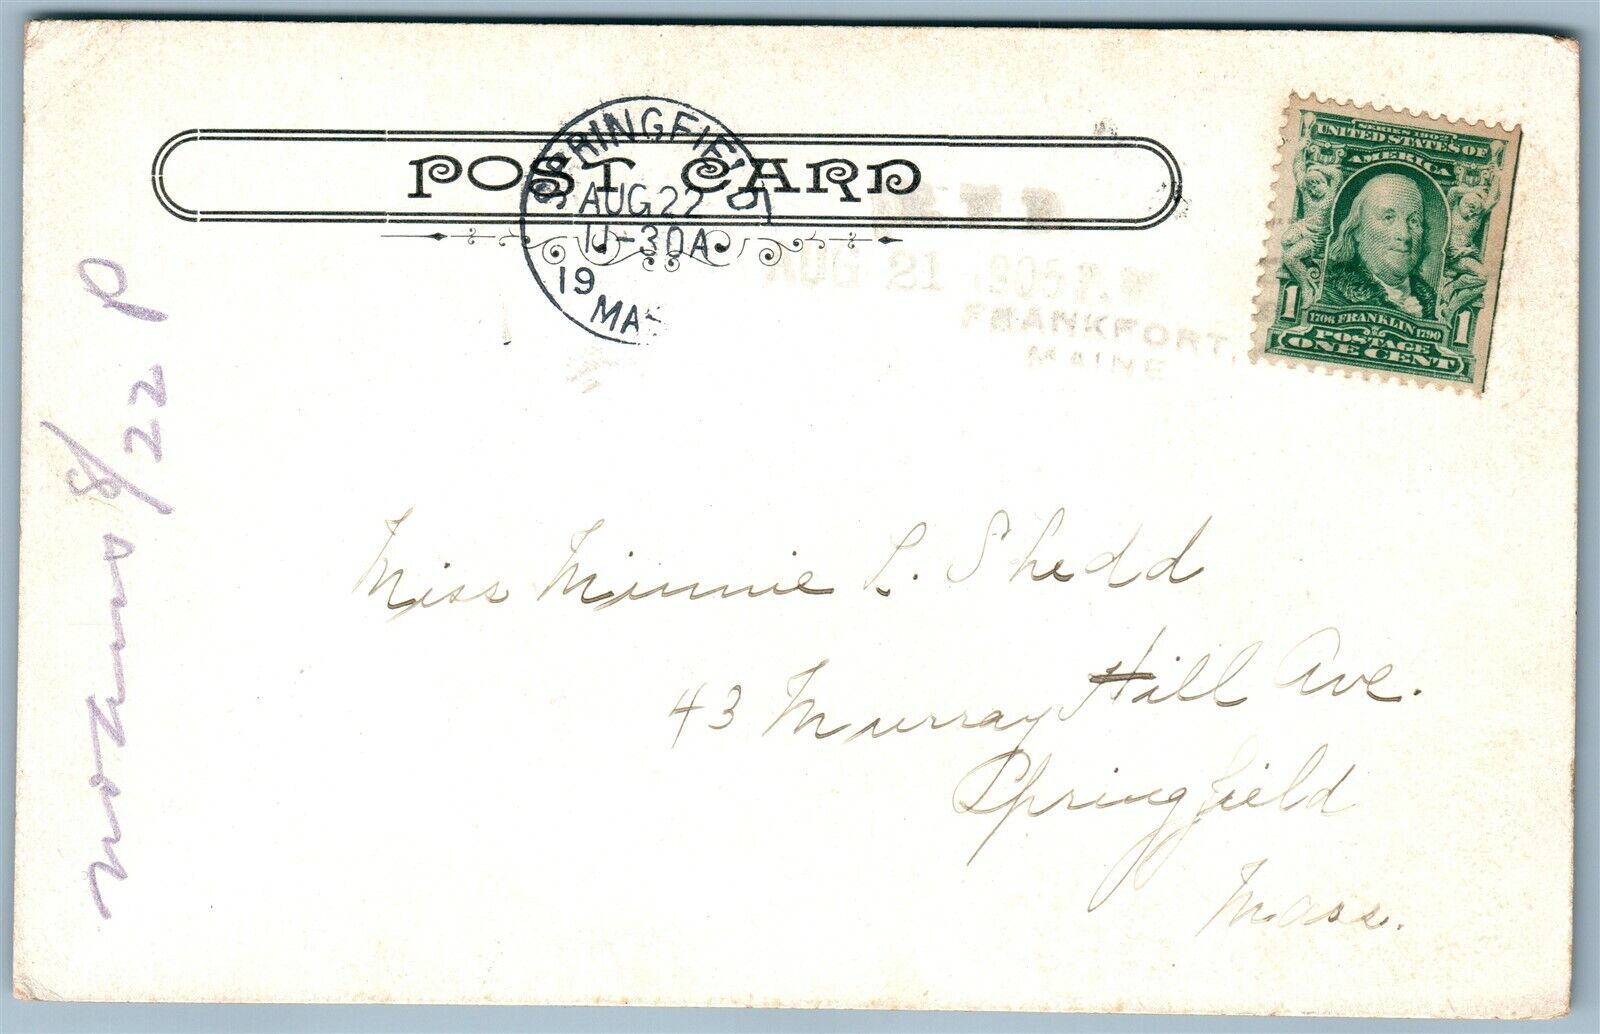 POST CARD
SPRINGFIELD
AUG 22
11-30A
19
MAS
AUG 21 905 P.M
FRANKFORT,
MAINE
SERIES 1902
UNITED STATES OF
AMERICA
1706 FRANKLIN 1790
1 1
POSTAGE
ONE CENT
8/22 P
Miss Minnie L. Shedd
43 Murray Hill Ave.
Springfield
Mass.